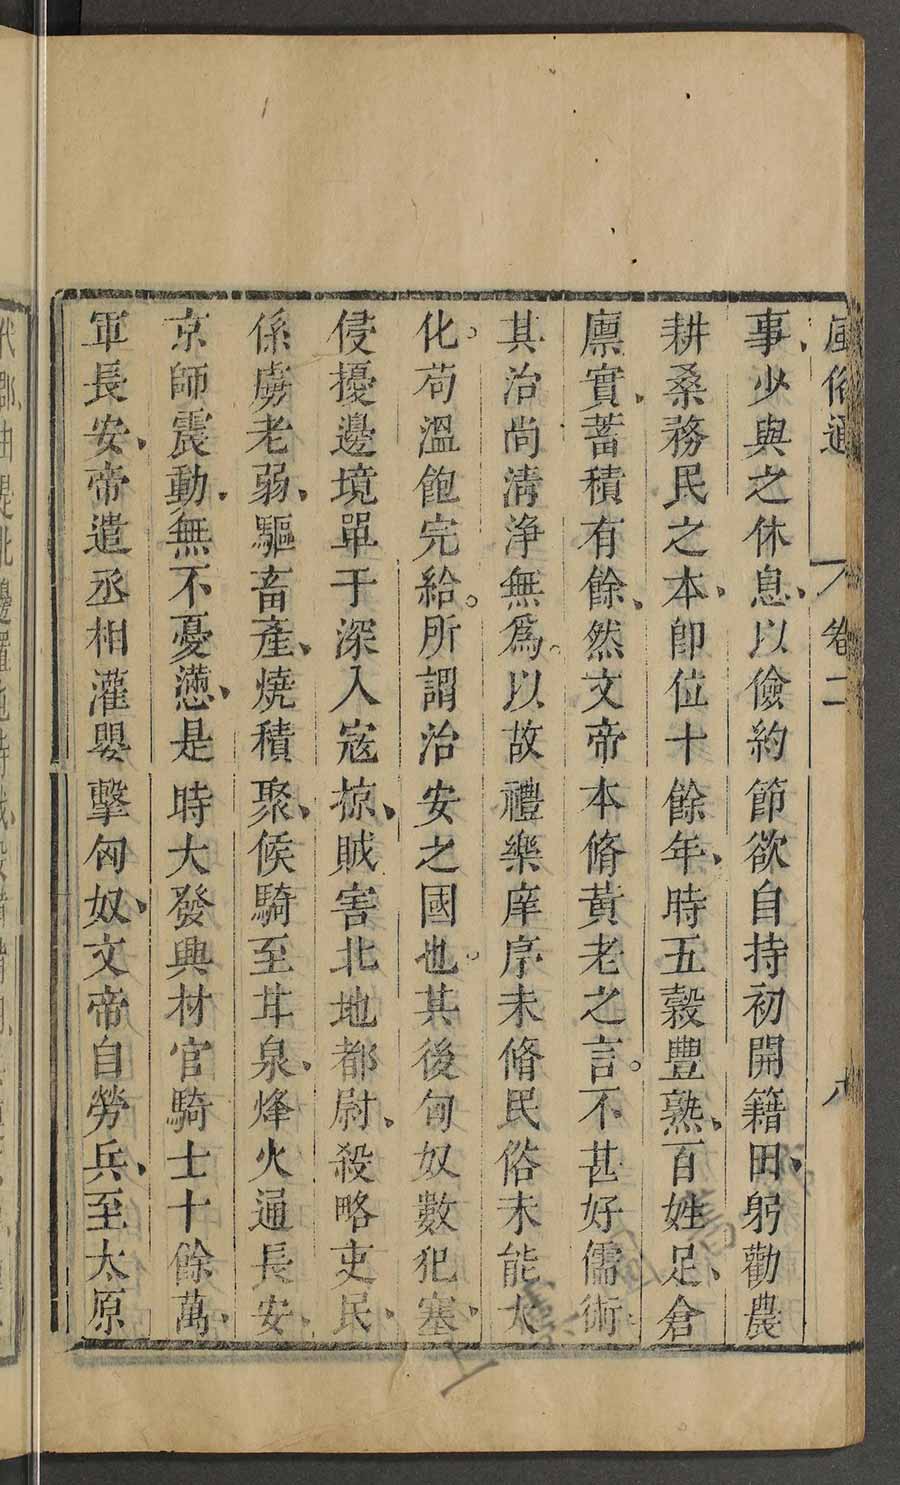 風俗通 卷二 八
事、少與之休息、以儉約節欲自持初開籍田、躬勸農
耕桑務民之本、卽位十餘年、時五穀豐熟、百姓足、倉
廪實、蓄積有餘、然文帝本脩黃老之言。不甚好儒術
其治尚淸浄無爲。以故禮樂庠序未脩民俗未能大
化。苟溫飽完給。所謂治安之國也。其後匈奴數犯塞、
侵擾邊境單于深入寇掠、賊害北地都尉、殺略吏民、
係虜老弱、驅畜產、燒積聚、候騎至甘泉、烽火通長安、
京師震動、無不憂懣、是時大發興材官騎士十餘萬、
軍長安、帝遣丞相灌嬰擊匈奴、文帝自勞兵、至太原
代郡、由是北邊置